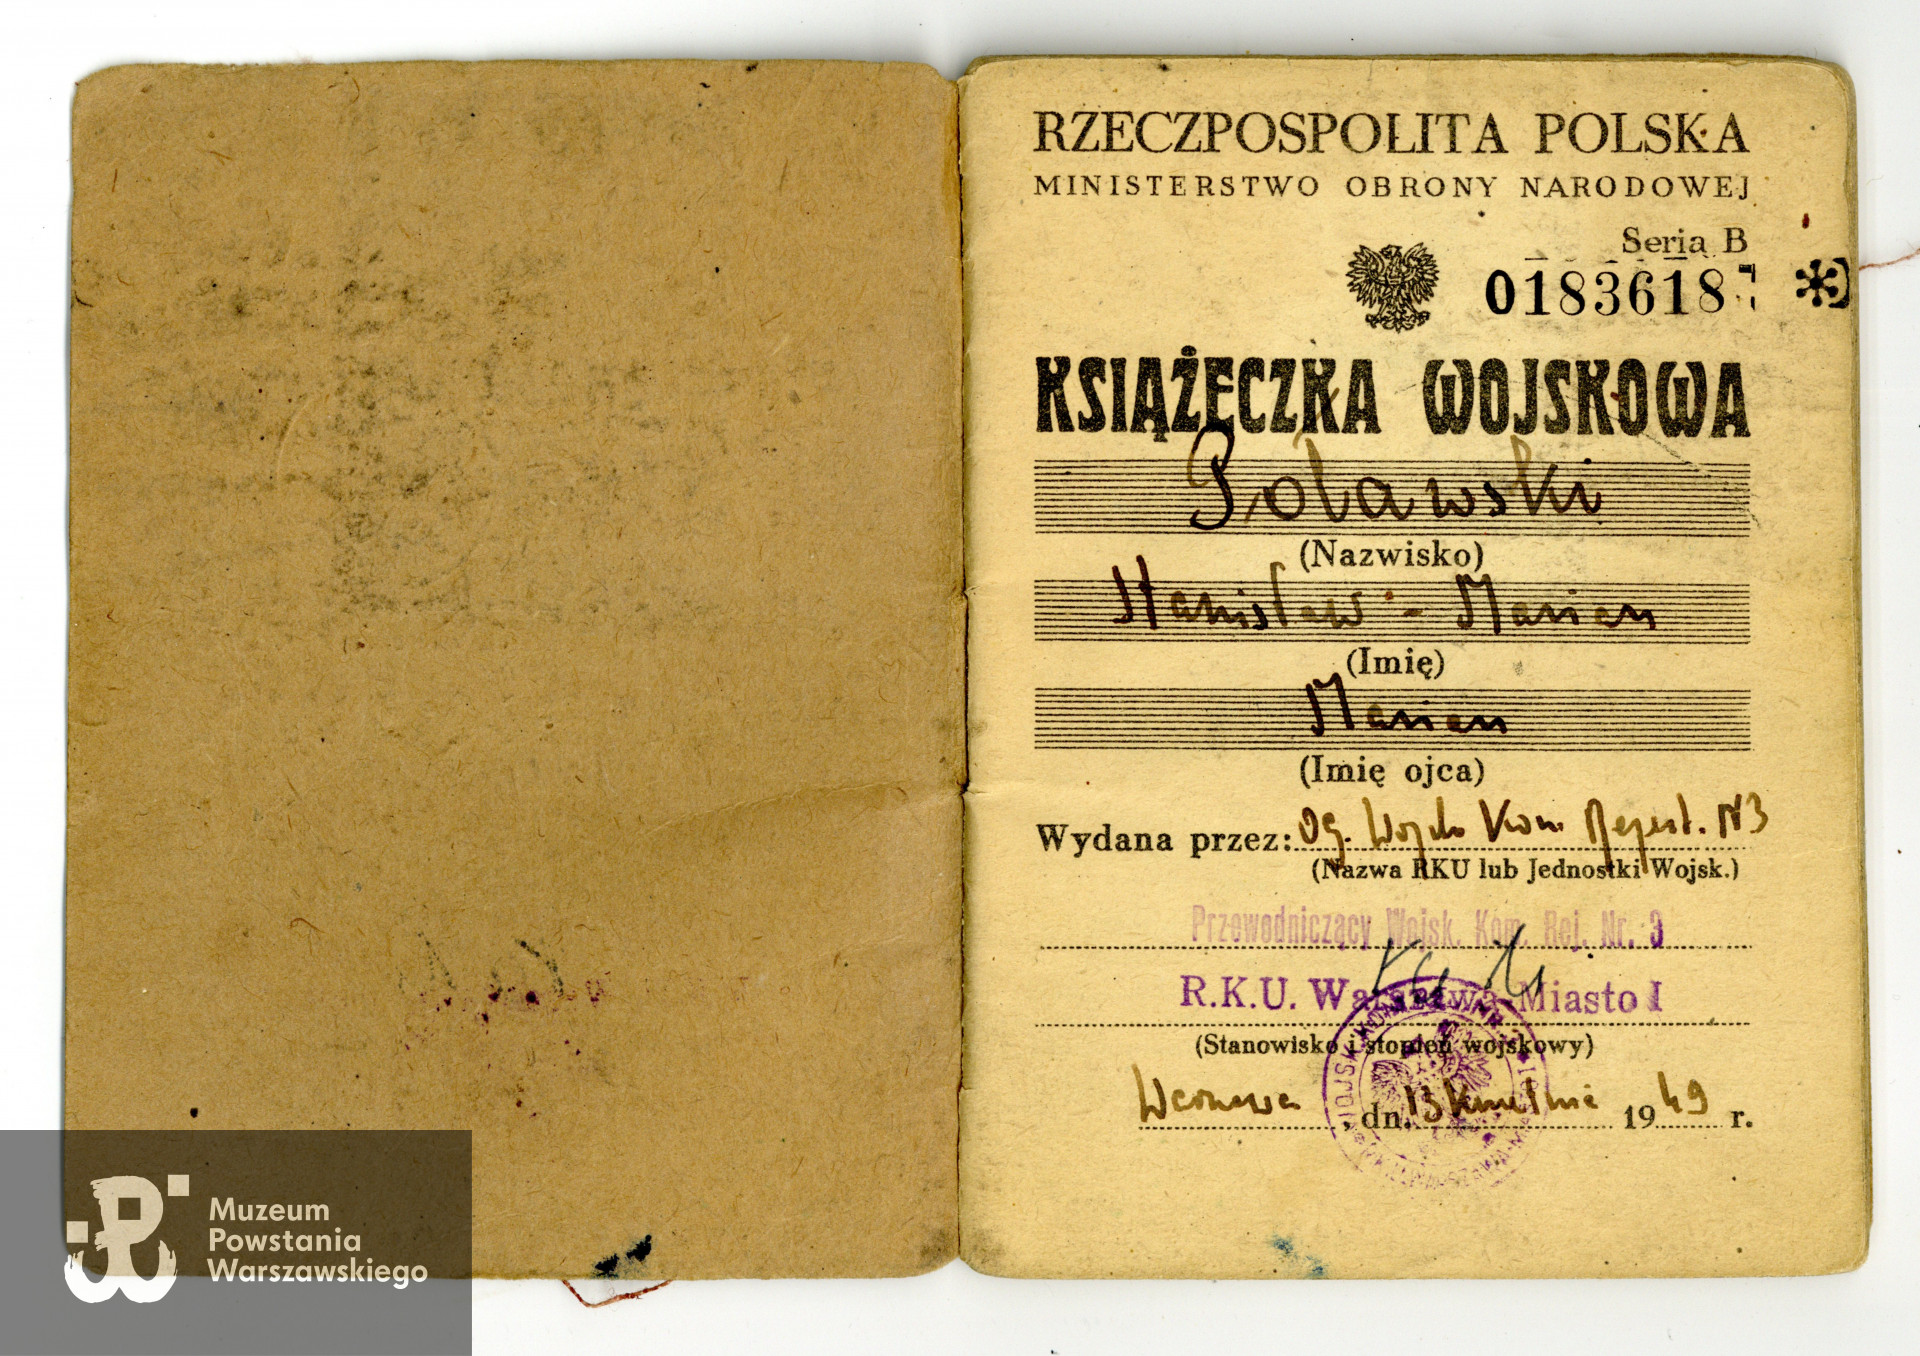 RZECZPOSPOLITA POLSKA
MINISTERSTWO OBRONY NARODOWEJ
Seria B
0183618
KSIĄŻECZKA WOJSKOWA
Poławski
(Nazwisko)
Stanisław - Marian
(Imię)
Marian
(Imię ojca)
Wydana przez: Og. Wojsk Kom. Rejest. N3
(Nazwa RKU lub Jednostki Wojsk.)
Przewodniczący Wojsk. Kom. Rej. Nr. 3
R.K.U. Warszawa-Miasto I
(Stanowisko i stopień wojskowy)
Warszawa, dn. 13 kwietnia 1949 r.
Muzeum
Powstania
Warszawskiego